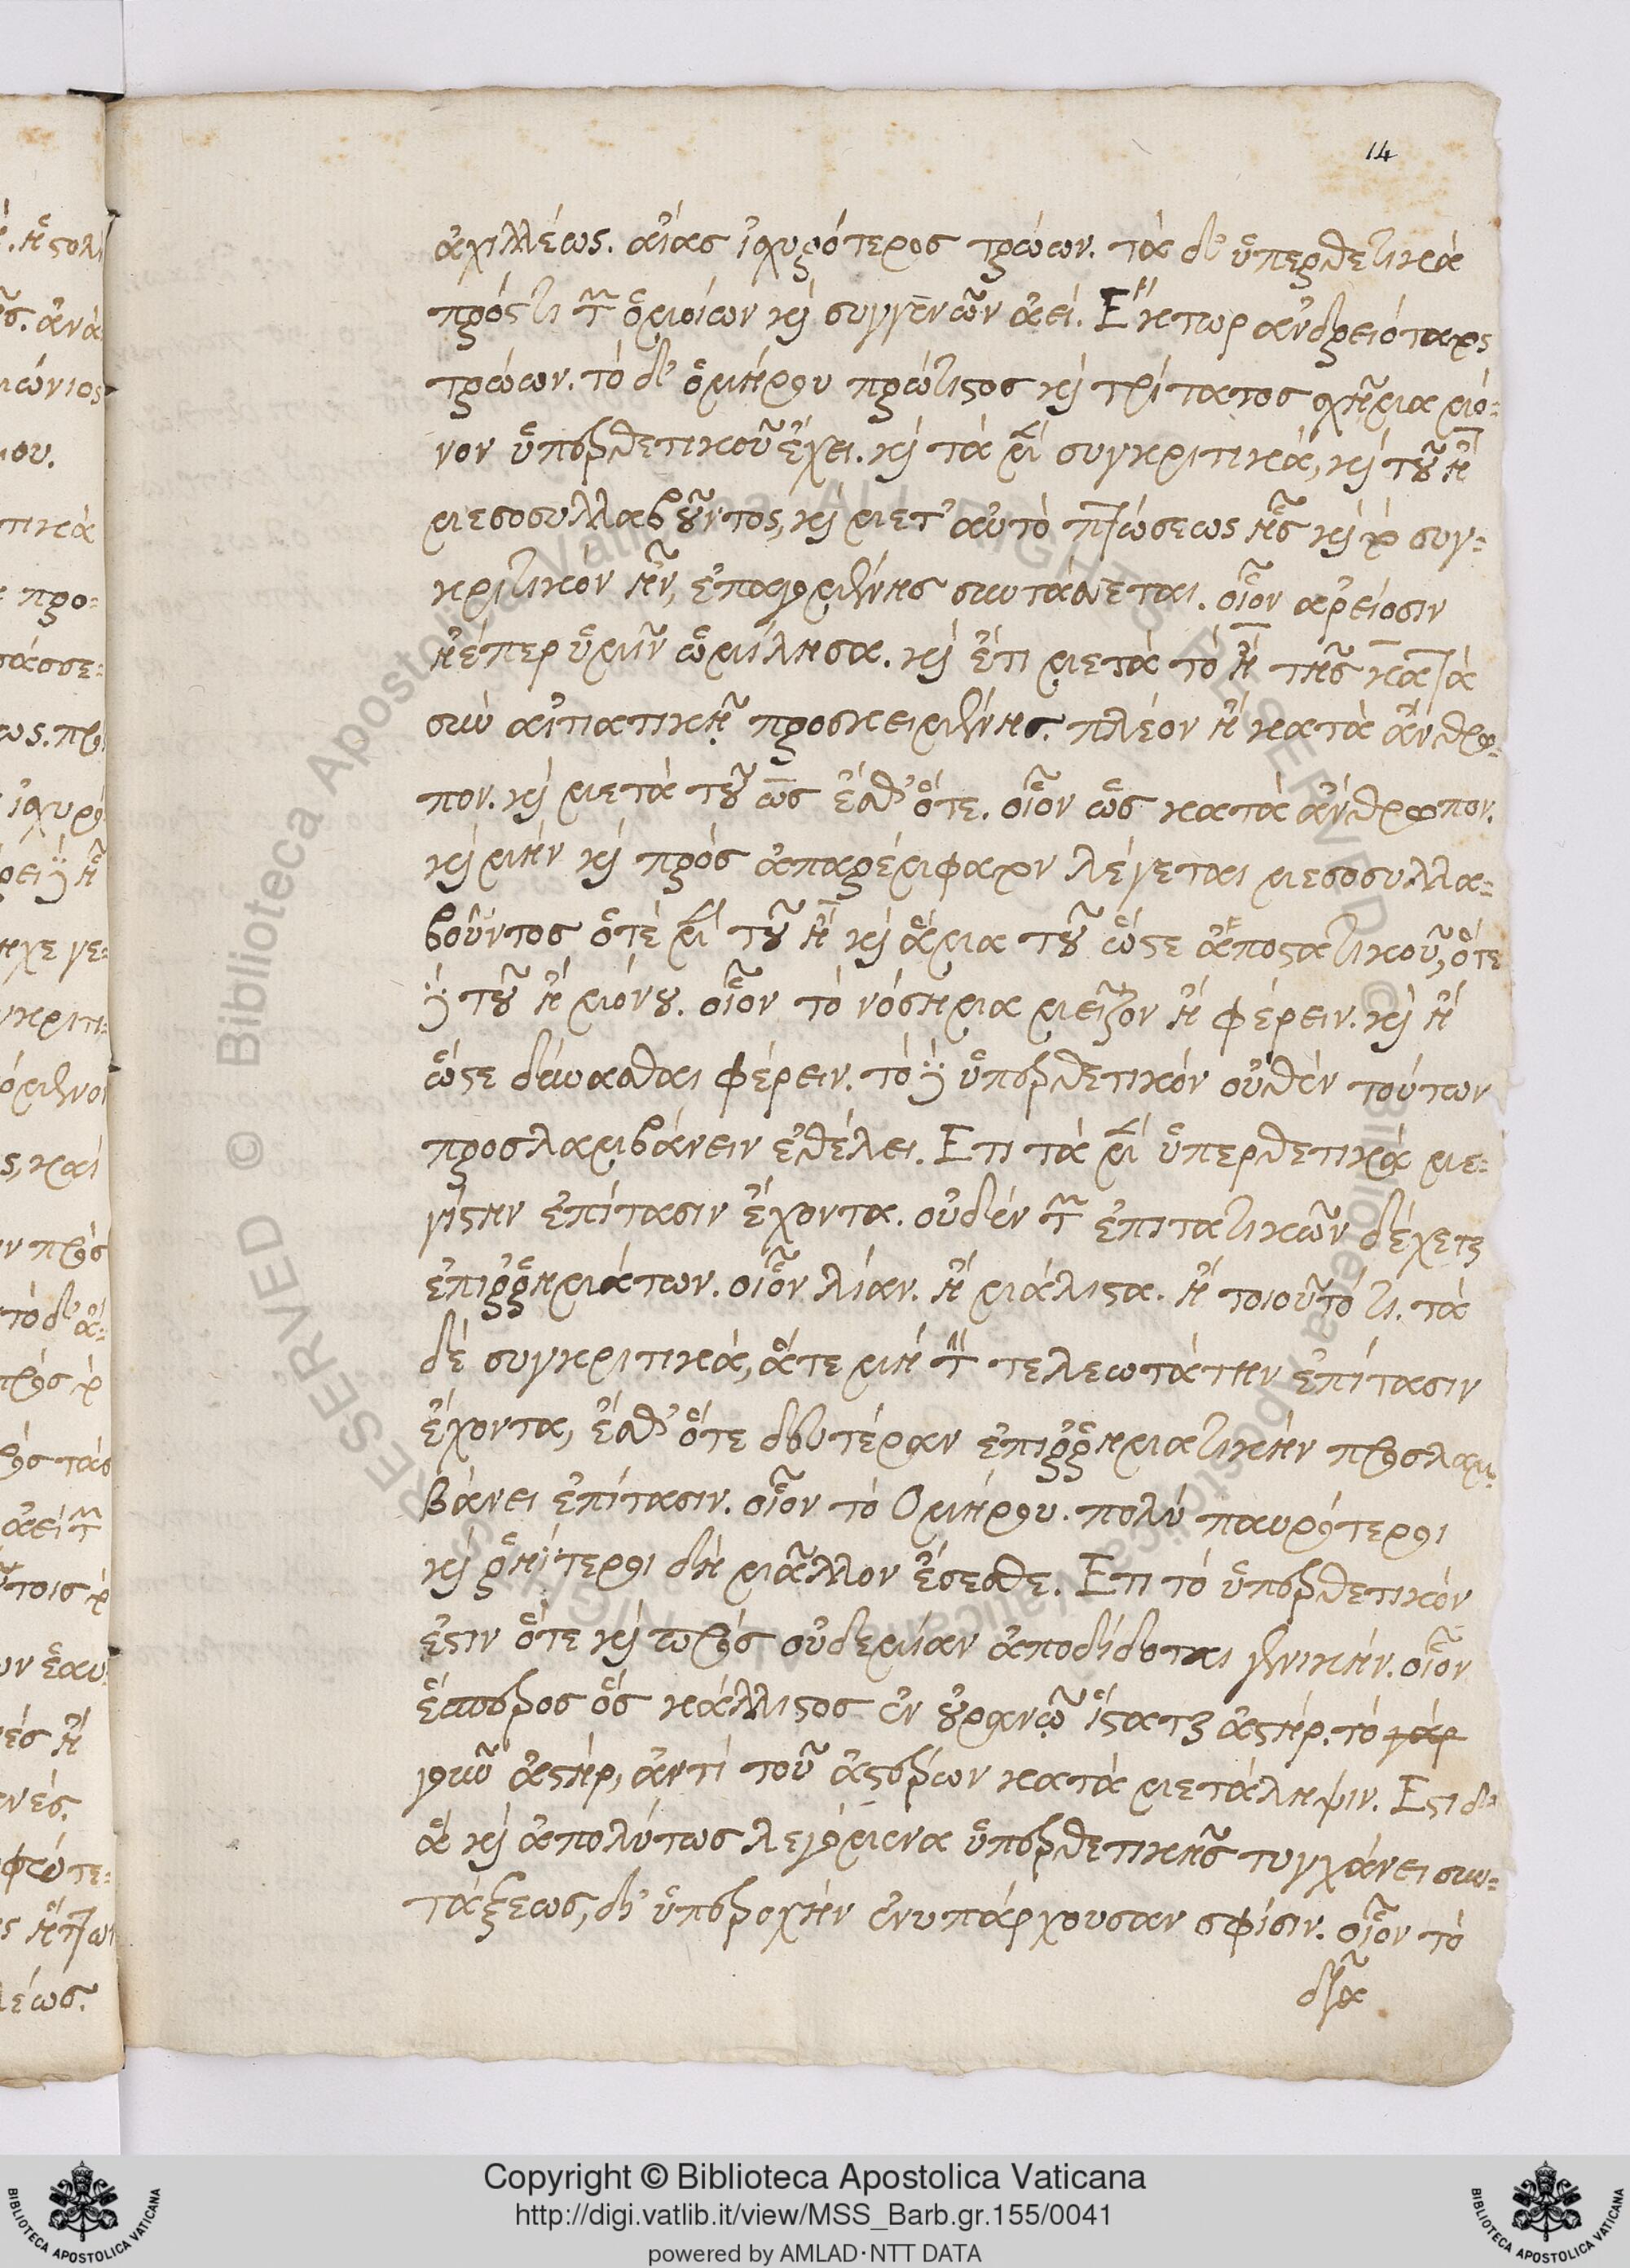 14
ἀχιλλέως. αἴας ἰσχυρότερος τρώων. τὰ δ' ὑπερθετικὰ
πρός τι τῶν ὁμοίων καὶ συγγενῶν ἀεί. Ἕκτωρ ἀνδρειότατος
τρώων. τὸ δ' ὁμήρου πρώτιστος καὶ τρίτατος σχῆμα μό-
νον ὑπερθετικοῦ ἔχει. καὶ τὰ μὲν συγκριτικά, καὶ τοῦ ἢ
μεσοσυλλαβοῦντος, καὶ μετ' αὐτὸ πτώσεως ἧς καὶ τὸ συγ-
κριτικὸν ἦν, ἐπαγομένης συντάσσεται. οἷον ἀρείοσιν
ἠέπερ ὑμῖν ὡμίλησα. καὶ ἔτι μετὰ τὸ ἢ τῆς κατὰ
σὺν αἰτιατικῇ προσκειμένης. πλέον ἢ κατὰ ἄνθρω-
πον. καὶ μετὰ τοῦ ὡς ἔσθ' ὅτε. οἷον ὡς κατὰ ἄνθρωπον.
καὶ μὴν καὶ πρὸς ἀπαρέμφατον λέγεται μεσοσυλλα-
βοῦντος ὁτὲ μὲν τοῦ ἢ καὶ ἅμα τοῦ ὥστε ἀποστατικοῦ, ὁτὲ
δὲ τοῦ ἢ μόνου. οἷον τὸ νόσημα μεῖζον ἢ φέρειν. καὶ ἢ
ὥστε δύνασθαι φέρειν. τὸ δὲ ὑπερθετικὸν οὐθὲν τούτων
προσλαμβάνειν ἐθέλει. Ετι τὰ μὲν ὑπερθετικὰ με-
γίστην ἐπίτασιν ἔχοντα. οὐδὲν τῶν ἐπιτατικῶν δέχεται
ἐπιῤῥημάτων. οἷον λίαν. ἢ μάλιστα. ἢ τοιοῦτό τι. τὰ
δὲ συγκριτικά, ἅτε μὴ τὴν τελεωτάτην ἐπίτασιν
ἔχοντα, ἔσθ' ὅτε δευτέραν ἐπιῤῥηματικὴν προσλαμ-
βάνει ἐπίτασιν. οἷον τὸ Ομήρου. πολὺ παυρότεροι
καὶ ῥηΐτεροι δὴ μᾶλλον ἔσεσθε. Ετι τὸ ὑπερθετικὸν
ἔστιν ὅτε καὶ πρὸς οὐδεμίαν ἀποδίδοται γενικήν. οἷον
ἕσπερος ὃς κάλλιστος ἐν οὐρανῷ ἵσταται ἀστήρ. τὸ γὰρ
γοῦν ἀστήρ, ἀντὶ τοῦ ἀστέρων κατὰ μετάληψιν. Εστι δ'
ἃ καὶ ἀπολύτως λεγόμενα ὑπερθετικῆς τυγχάνει συν-
τάξεως, δι' ὑπεροχὴν ἐνυπάρχουσαν σφίσιν. οἷον τὸ
δῖα